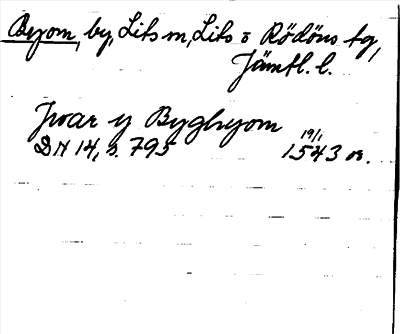 Byom, by, Lits sn, Lits o Rödöns tg,
Jämtl. l.
Jwar y Byghyom
DN 14, s. 795 19/1 1543 or.